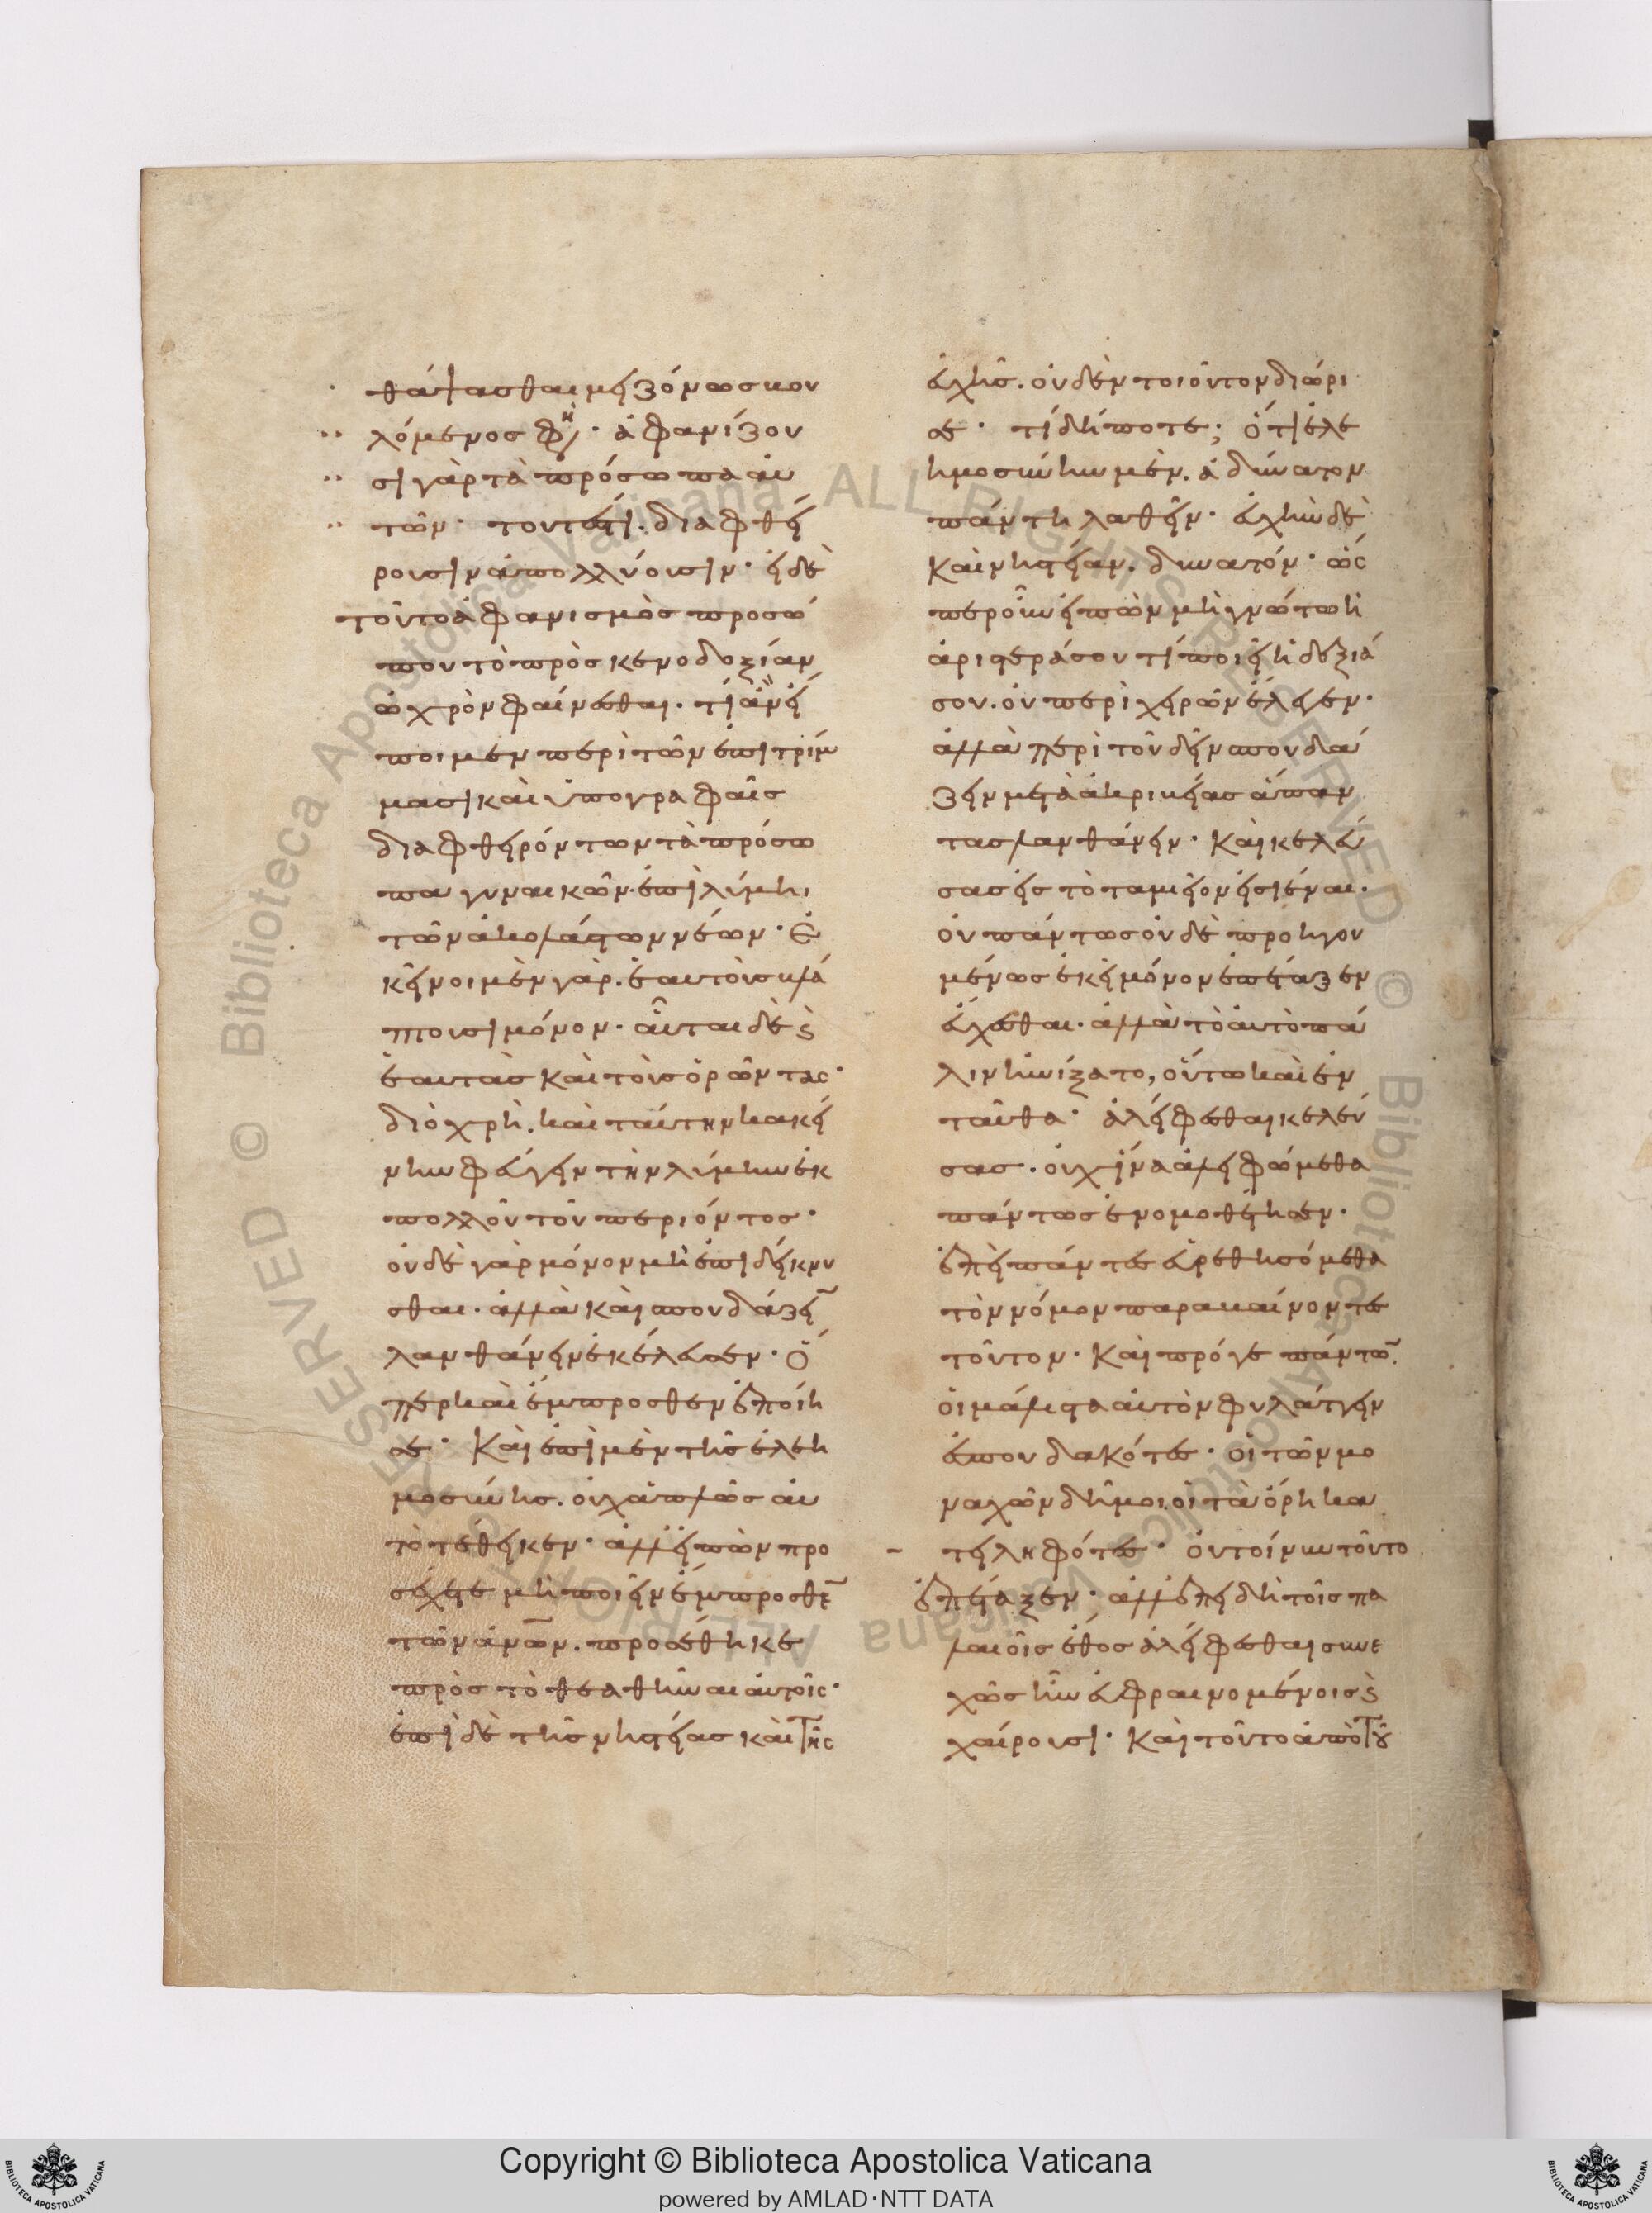 θάψασθαι μειζόνως βου
λόμενος φη· ἀφανίζου
σι γὰρ τὰ πρόσωπα αὐ
τῶν· τουτέστι. διαφθεί
ρουσιν ἀπολλύουσιν· εἰ δὲ
τοῦτο ἀφανισμὸς προσώ
που τὸ πρὸς κενοδοξίαν
ὠχρὸν φαίνεσθαι. τί ἂν εἴ
ποιμεν περὶ τῶν ἐπιτρίμ
μασι καὶ ὑπογραφαῖς
διαφθειρόντων τὰ πρόσω
πα γυναικῶν. ἐπὶ λύμηι
τῶν ἀκολάστων νέων· Ἐ
κεῖνοι μὲν γὰρ. ἑαυτοὺς βλά
πτουσι μόνον· αὗται δὲ ϛ
ἑαυτὰς καὶ τοὺς ὁρῶντας·
διὸ χρὴ. καὶ ταύτην κακεί
νην φεύγειν τὴν λύμην ἐκ
πολλοῦ τοῦ περιόντος·
οὐδὲ γὰρ μόνον μὴ ἐπιδείκνυ
σθαι. ἀλλὰ καὶ σπουδάζει
λανθάνειν ἐκέλευσεν· Ὅ
περ καὶ ἔμπροσθεν ἐποίη
σε· Καὶ ἐπὶ μὲν τῆς ἐλεη
μοσύνης. οὐχ ἁπλῶς αὐ
τὸ τέθεικεν· ἀλλ' εἰπὼν προ
σέχετε μὴ ποιεῖν ἔμπροσθε
τῶν ἀνων. προσέθηκε
πρὸς τὸ θεαθῆναι αὐτοῖς·
ἐπὶ δὲ τῆς νηστείας καὶ τῆς
εὐχῆς. οὐδὲν τοιοῦτον διώρι
σε· τί δήποτε; ὅτι ἐλε
ημοσύνην μὲν. ἀδύνατον
πάντη λαθεῖν· εὐχὴν δὲ
καὶ νηστείαν. δυνατόν· ὥς
περ οὖν εἰπὼν μὴ γνώτω ἡ
ἀριστερά σου τί ποιεῖ ἡ δεξιά
σου. οὐ περὶ χειρῶν ἔλεγεν·
ἀλλὰ περὶ τοῦ δεῖν σπουδά
ζειν μετὰ ἀκριβείας ἅπαν
τας λανθάνειν· Καὶ κελεύ
σας εἰς τὸ ταμιεῖον εἰσιέναι.
οὐ πάντως οὐδὲ προηγου
μένως ἐκεῖ μόνον ἐπέταξεν
εὔχεσθαι. ἀλλὰ τὸ αὐτὸ πά
λιν ἠνίξατο, οὕτω καὶ ἐν
ταῦθα· ἀλείφεσθαι κελεύ
σας. οὐχ ἵνα ἀλειφώμεθα
πάντως ἐνομοθέτησεν.
ἐπεὶ πάντες εὑρεθησόμεθα
τὸν νόμον παραβαίνοντες
τοῦτον· Καὶ πρό γε πάντω.
οἱ μάλιστα αὐτὸν φυλάττειν
ἐσπουδακότες· οἱ τῶν μο
ναχῶν δῆμοι. οἱ τὰ ὄρη κα
τειληφότες· οὐ τοίνυν τοῦτο
ἐπέταξεν· ἀλλ' ἐπειδὴ τοῖς πα
λαιοῖς ἔθος ἀλείφεσθαι συνε
χῶς ἦν εὐφραινομένοις ϛ
χαίρουσι. Καὶ τοῦτο ἀπὸ τοῦ
Copyright © Biblioteca Apostolica Vaticana
powered by AMLAD·NTT DATA